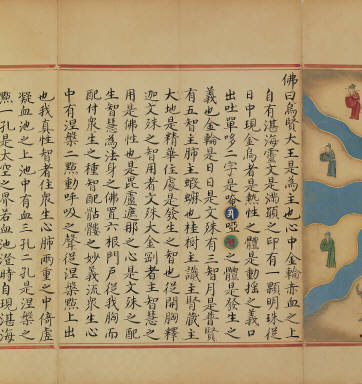 佛曰烏賢大王是為主也心中金輪赤血之上
自有湛海靈文是滿顆之印有一顆明珠從
日中現金烏者是熱性之體是動搖之義口
出吐單哆二字是唵 啞 之體是發生之
義也金輪是日日是文殊有三智月是普賢
有五智主肺主蝦蟆也桂樹主識主腎藏主
大地是精華住處是發生之智也從開胸釋
迦文殊之智用者文殊大金剛者主智慧之
用是佛性也是毘盧遮那之心是文殊之配
生智慧為法身之佛置六根門戶從我胸而
配付衆生之種智配骷髏之妙義流衆生心
中有涅槃二㸃動呼吸之聲從涅槃㸃上出
也我真性智者住衆生心肺兩重之中倚虛
凝血池之上池中有血三孔二孔是涅槃之
㸃一孔是太空之界若血池澄時自現湛海